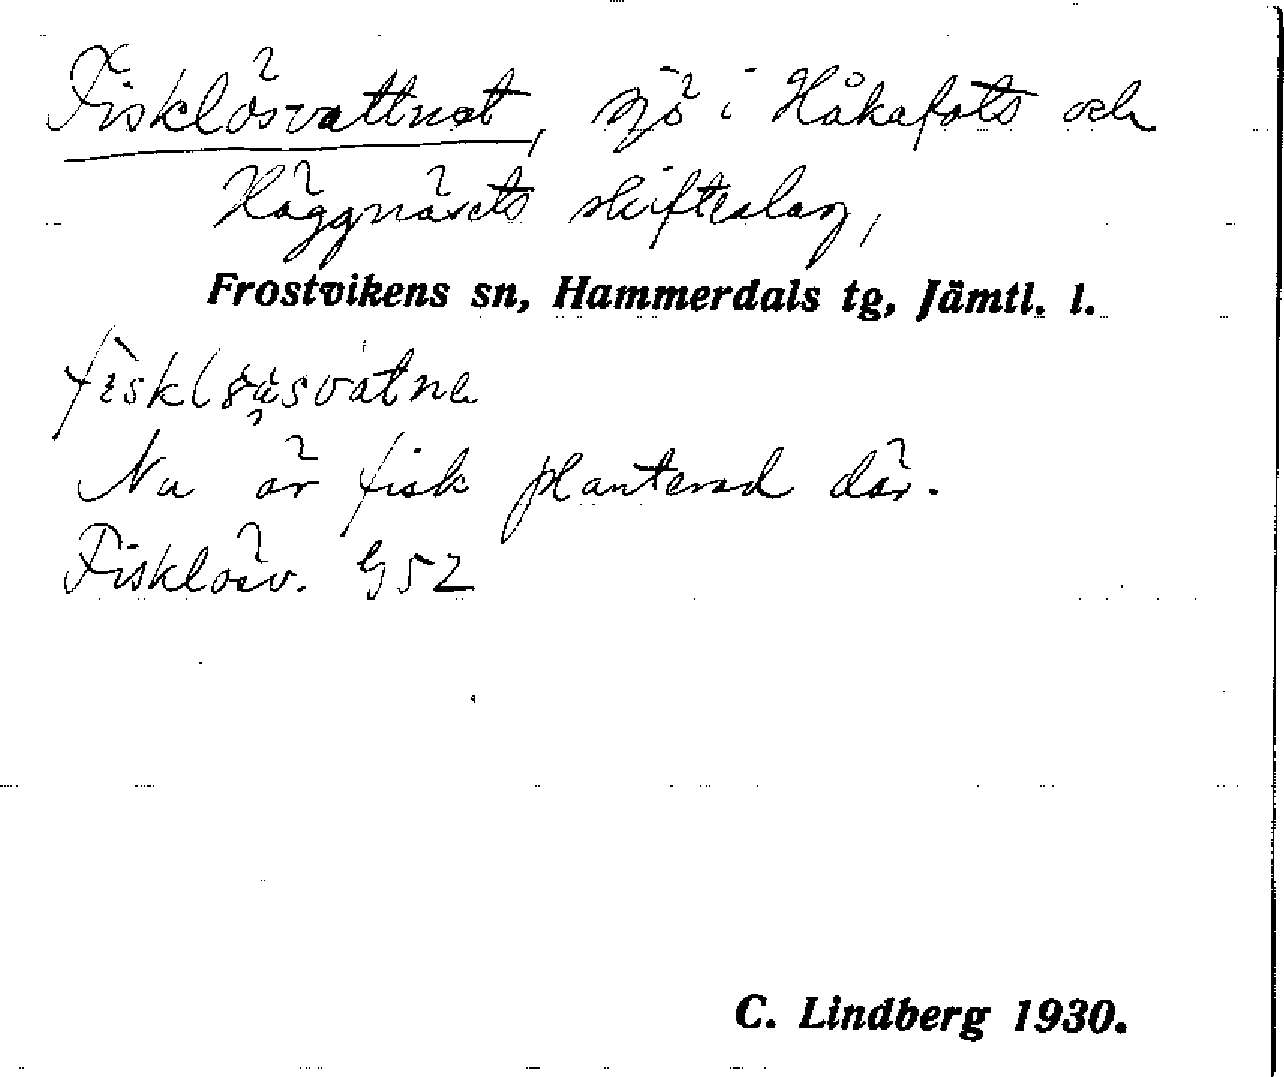 Fisklösvattnet, sjö i Håkafots och
Häggnäsets skifteslag,
Frostvikens sn, Hammerdals tg, Jämtl. l.
Nu är fisk planterad där.
Fisklösv. G52
C. Lindberg 1930.